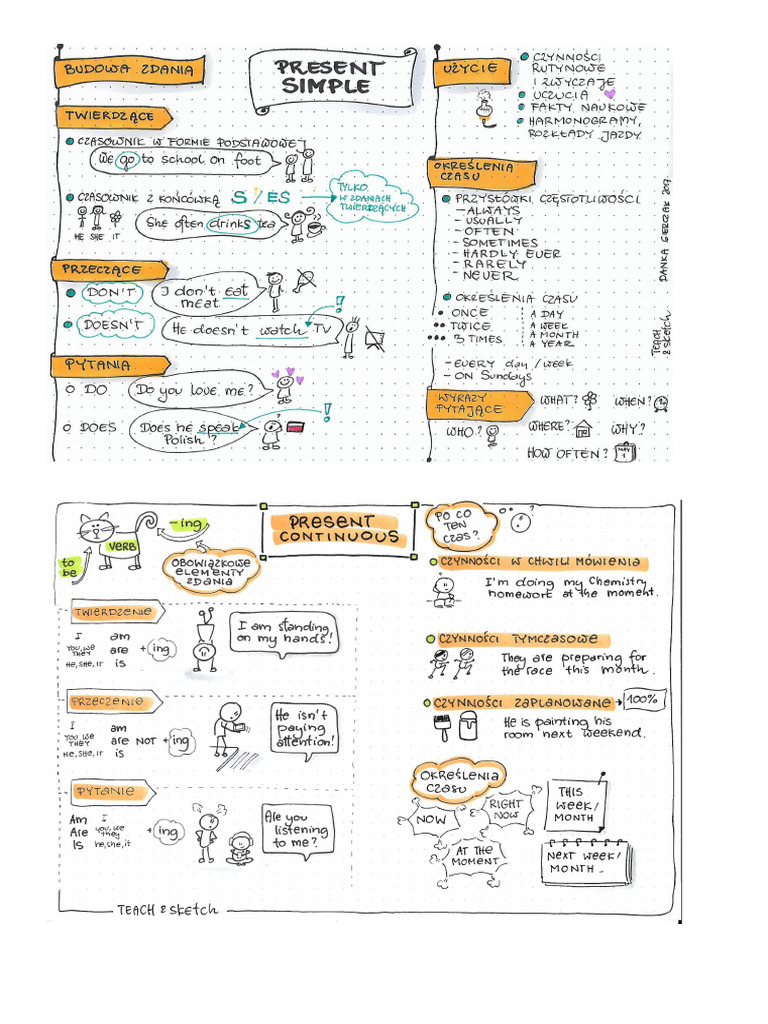 BUDOWA ZDANIA
PRESENT
SIMPLE
TWIERDZĄCE
CZASOWNIK W FORMIE PODSTAWOWEJ
We go to school on foot
CZASOWNIK Z KOŃCÓWKĄ S/ES
TYLKO
W ZDANIACH
TWIERDZĄCYCH
HE SHE IT
She often drinks tea
PRZECZĄCE
DON'T
I don't eat
meat
!
DOESN'T
He doesn't watch TV
PYTANIA
O DO
Do you love me?
O DOES
Does he speak
Polish?
!
UŻYCIE
CZYNNOŚCI
RUTYNOWE
I ZWYCZAJE
UCZUCIA
FAKTY NAUKOWE
HARMONOGRAMY,
ROZKŁADY JAZDY
OKREŚLENIA
CZASU
PRZYSŁÓWKI CZĘSTOTLIWOŚCI
- ALWAYS
- USUALLY
- OFTEN
- SOMETIMES
- HARDLY EVER
- RARELY
- NEVER
OKREŚLENIA CZASU
ONCE
TWICE
3 TIMES
A DAY
A WEEK
A MONTH
A YEAR
- EVERY day / week
- ON Sundays
WYRAZY
PYTAJĄCE
WHAT? WHEN?
WHO? WHERE? WHY?
HOW OFTEN?
MAY
1
DANKA SIERCZAK 2017
TEACH
& sketch
PRESENT
CONTINUOUS
- ing
VERB
to
be
OBOWIĄZKOWE
ELEMENTY
ZDANIA
TWIERDZENIE
I am
YOU, WE
THEY are + ing
HE, SHE, IT is
I am standing
on my hands!
PRZECZENIE
I am
YOU, WE
THEY are NOT + ing
HE, SHE, IT is
He isn't
paying
attention!
PYTANIE
Am I
Are you, we
they + ing
Is he, she, it
Are you
listening
to me?
PO CO
TEN
CZAS?
CZYNNOŚCI W CHWILI MÓWIENIA
I'm doing my Chemistry
homework at the moment.
CZYNNOŚCI TYMCZASOWE
They are preparing for
the race this month.
CZYNNOŚCI ZAPLANOWANE → 100%
He is painting his
room next weekend.
OKREŚLENIA
CZASU
NOW
RIGHT
NOW
AT THE
MOMENT
THIS
WEEK/
MONTH
NEXT WEEK/
MONTH
TEACH & sketch